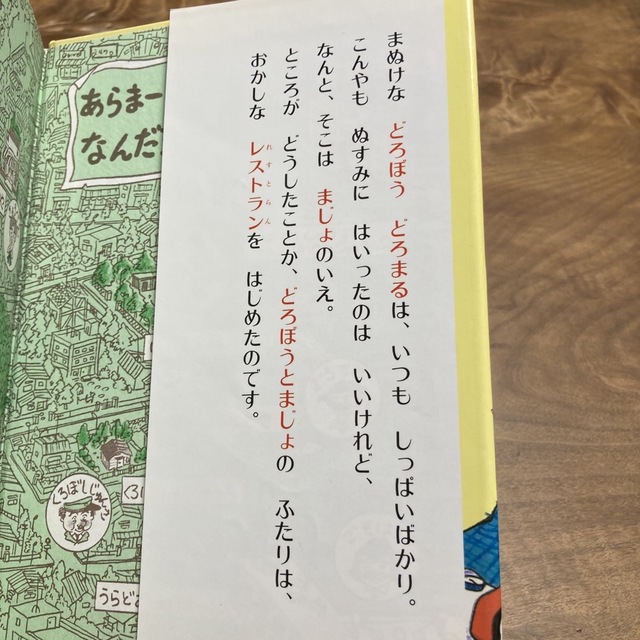 まぬけな どろぼう どろまるは、いつも しっぱいばかり。
こんやも ぬすみに はいったのは いいけれど、
なんと、そこは まじょのいえ。
ところが どうしたことか、どろぼうとまじょの ふたりは、
おかしな レストランを はじめたのです。
れすとらん
あらまー
なんだ
うらど